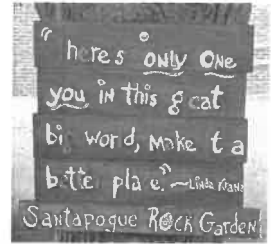 "heres only one
you in this g eat
bi wor d, Make t a
b tte pla e." ~Linda Kranz
Santapogue Rock Garden